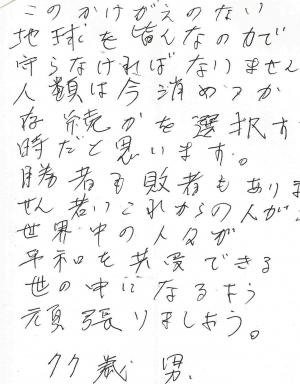 このかけがえのない
地球を皆んなの力で
守らなければなりません
人類は今消めつか
存続かを選択す
時だと思います。
勝者も敗者もありま
せん若いこれからの人が
世界中の人々が
平和を共受できる
世の中になるよう
頑張りましょう。
77歳 男